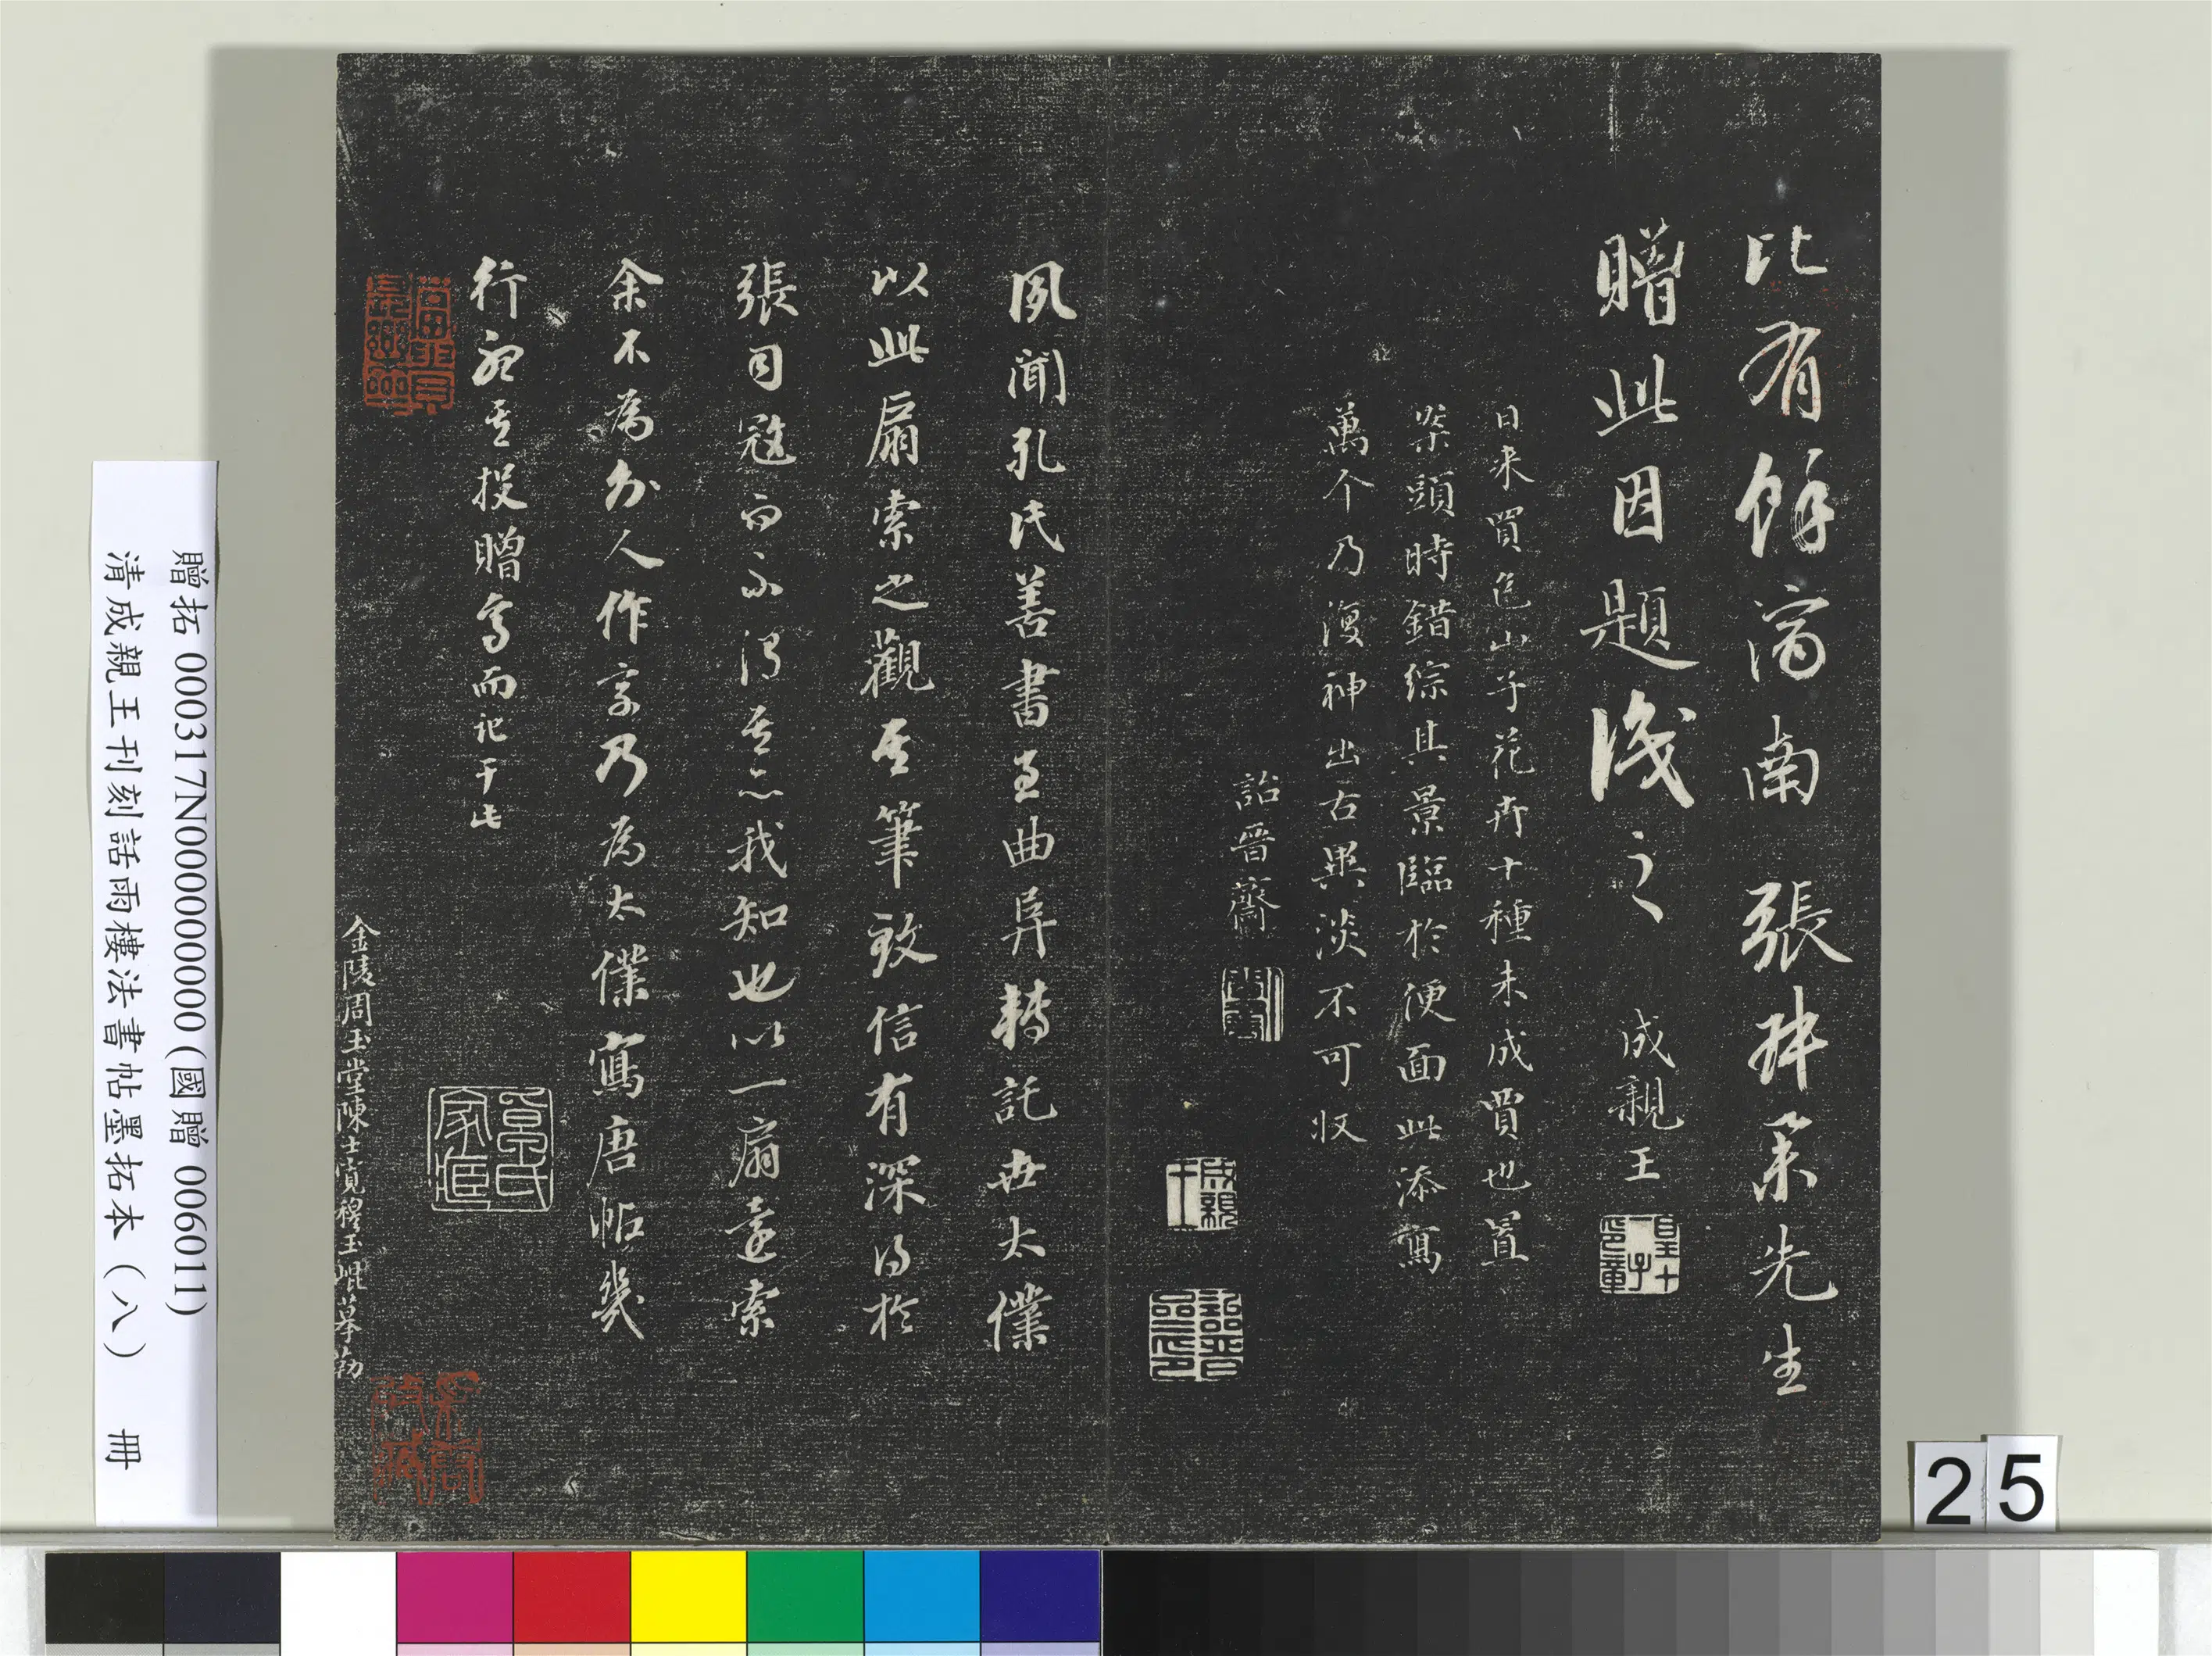 比有餘濟南張
策先生
贈此因題識之
成親王
皇十一子永瑆印章
日來買邑山子花卉十種未成賈也置
案頭時錯綜其景臨於便面此添寫
萬个乃復神出古與淡不可收
詒晉齋
成親王
詒晉齋印
夙聞孔氏善書至曲 轉託安太僕
以此扇索之觀其筆致信有深得於
張司寇而不得其 我知也以一扇遠索
余不為外人作字乃為太僕寫唐帖幾
行 其投贈嘉而記于此
金陵周玉堂陳士寬穆玉崐摹勒
贈拓 000317N000000000 (國贈 006011)
清成親王刊刻話雨樓法書帖墨拓本（八） 冊
25